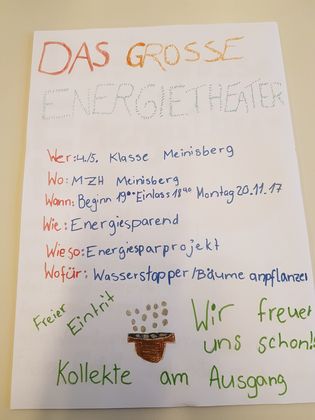 DAS GROSSE
ENERGIETHEATER
Wer: 4./5. Klasse Meinisberg
Wo: MZH Meinisberg
Wann: Beginn 19⁰⁰ Einlass 18⁴⁰ Montag 20.11.17
Wie: Energiesparend
Wieso: Energiesparprojekt
Wofür: Wasserstopper/Bäume anpflanzen
Freier
Eintrit
Wir freuen
uns schon!!
Kollekte am Ausgang